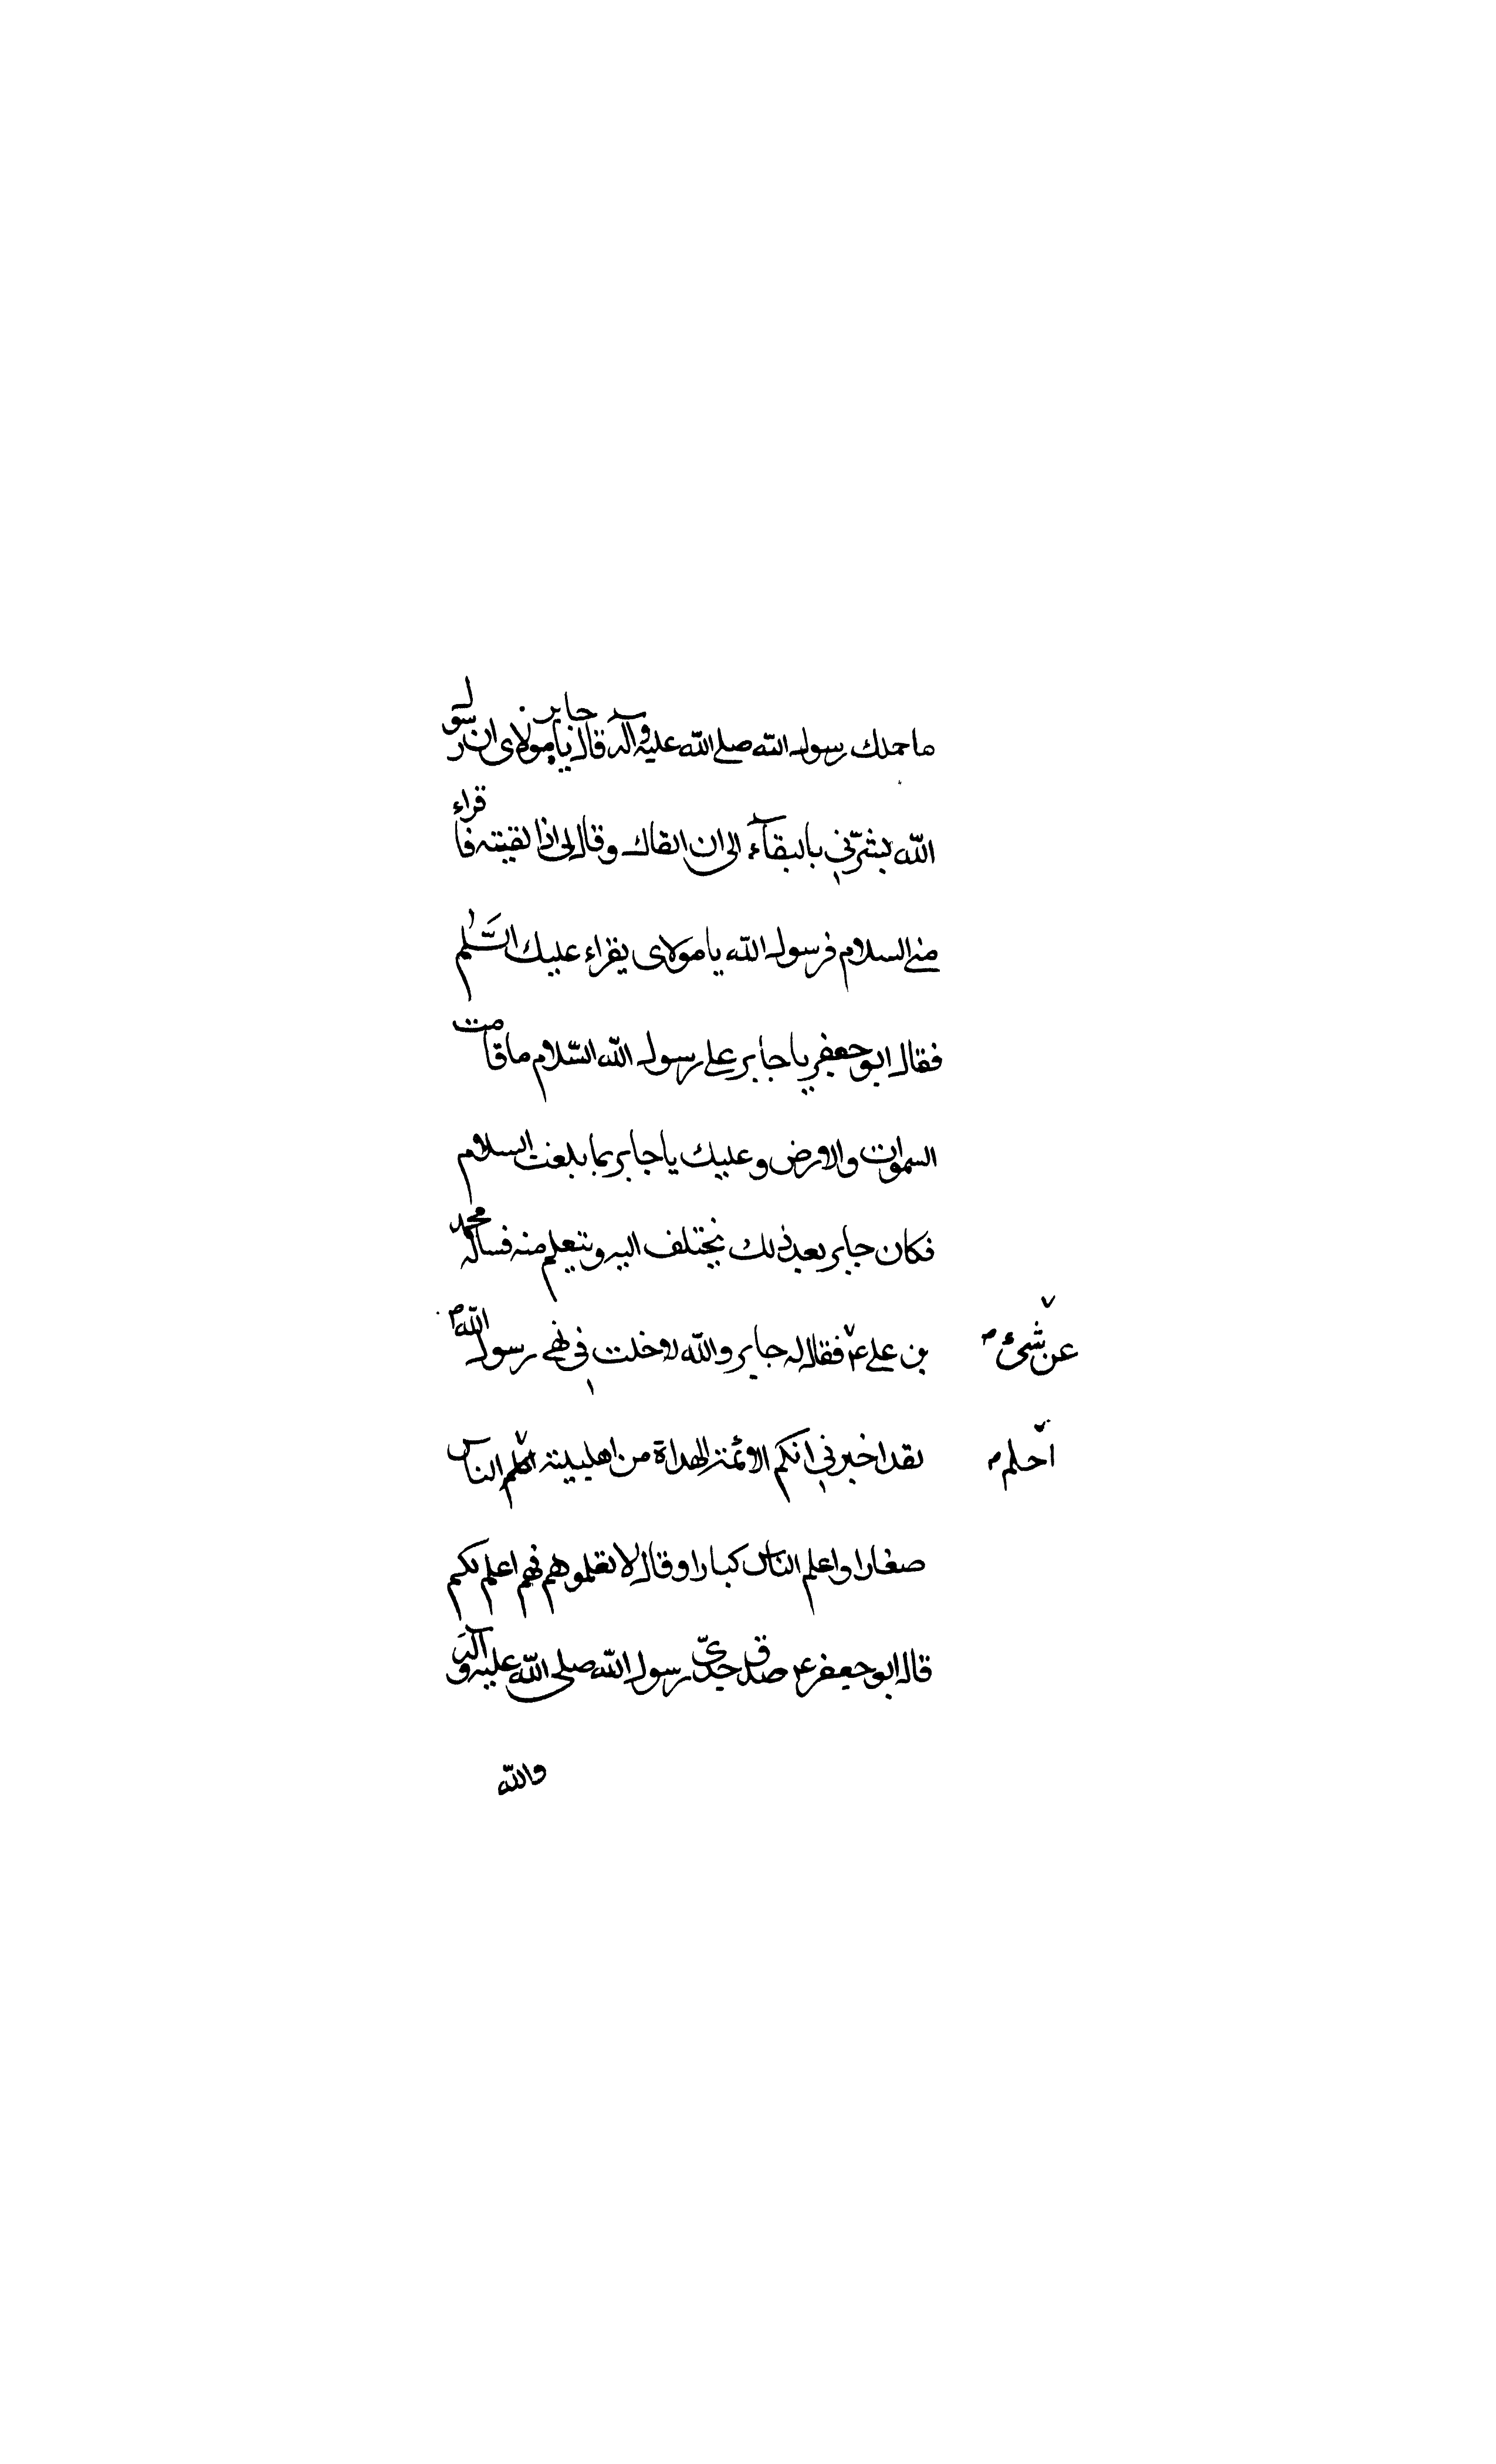 ما حملك رسول الله صلى الله عليه وآله قال جابر يا مولاى ان رسول
الله بشرّني بالبقآء الى ان القاك وقال لى اذا لقيته فاقراء
منى السلام فرسول الله يا مولاى يقراء عليك السَّلم
فقال ابو جعفر يا جابر على رسول الله السّلام ما قامت
السموات والارض وعليك يا جابر بما بلغت السلام
فكان جابر بعد ذلك يختلف اليه ويتعلم منه فساله محمد
بن على ع فقال له جابر والله لا دخلت في نهى رسول الله ص
عن شئ
لقد اخبرني انكم الائمة الهداة من اهل بيته النّاس
احلم
صغارا واعلم الناس كبارا وقال لا تعلموهم فهم اعلم بكم
قال ابو جعفر ع صدق جدّى رسول الله صلى الله عليه وآله
والله